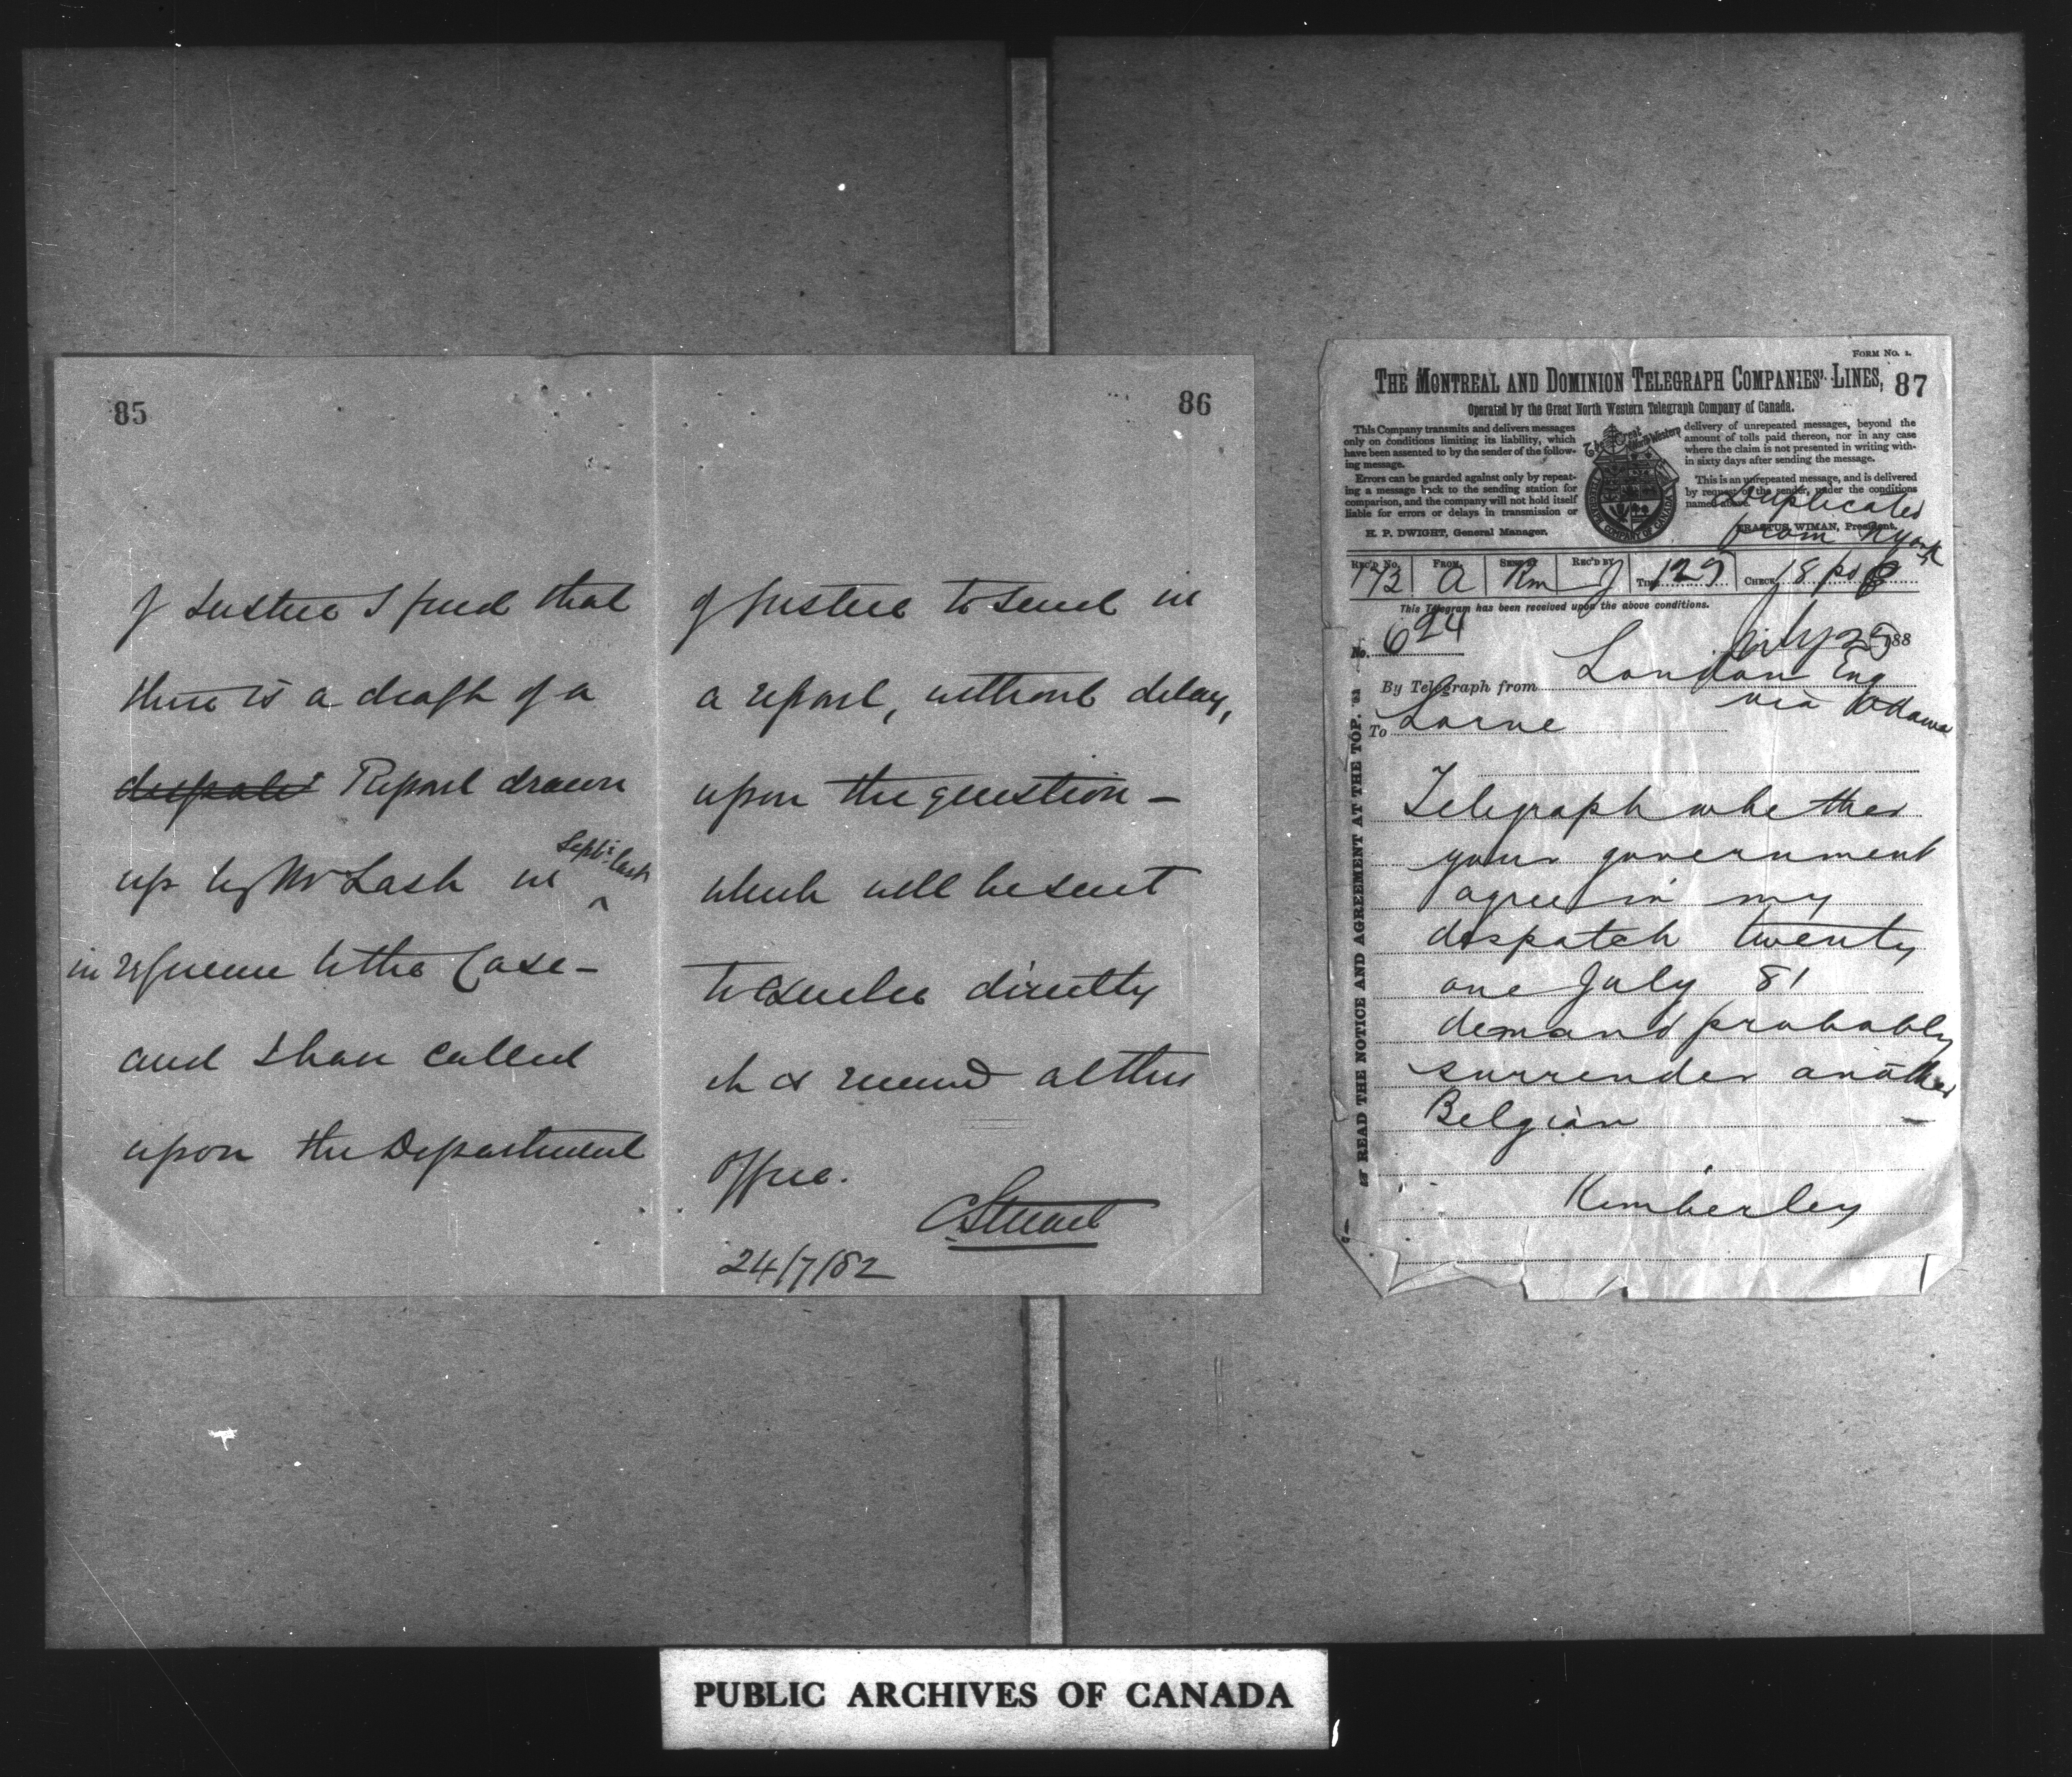 85
of Justice I find that
there is a draft of a
despatch Report drawn
up by Mr Lash in Sept: last
in reference to the Case -
and I have called
upon the Department
86
of Justice to send in
a report, without delay,
upon the question -
which will be sent
to directly
it is received at this
Office.
C Stewart
24/7/82
FORM No. 1.
THE MONTREAL AND DOMINION TELEGRAPH COMPANIES' LINES, 87
Operated by the Great North Western Telegraph Company of Canada.
This Company transmits and delivers messages
only on conditions limiting its liability, which
have been assented to by the sender of the follow-
ing message.
Errors can be guarded against only by repeat-
ing a message back to the sending station for
comparison, and the company will not hold itself
liable for errors or delays in transmission or
H. P. DWIGHT, General Manager.
The Great North Western
TELEGRAPH COMPANY OF CANADA
delivery of unrepeated messages, beyond the
amount of tolls paid thereon, nor in any case
where the claim is not presented in writing with-
in sixty days after sending the message.
This is an unrepeated message, and is delivered
by request of the sender, under the conditions
named above.
ERASTUS WIMAN, President.
Duplicated
from NYork
REC'D No. 173 FROM A SENT BY Rm REC'D BY J TIME 129 CHECK 18 pd
This Telegram has been received upon the above conditions.
No. 624
July 25 188
By Telegraph from London Eng
via Ottawa
To Lorne
Telegraph whether
your government
agree in my
despatch twenty
one July 81
demand probably
surrender another
Belgian -
Kimberley
READ THE NOTICE AND AGREEMENT AT THE TOP.
PUBLIC ARCHIVES OF CANADA